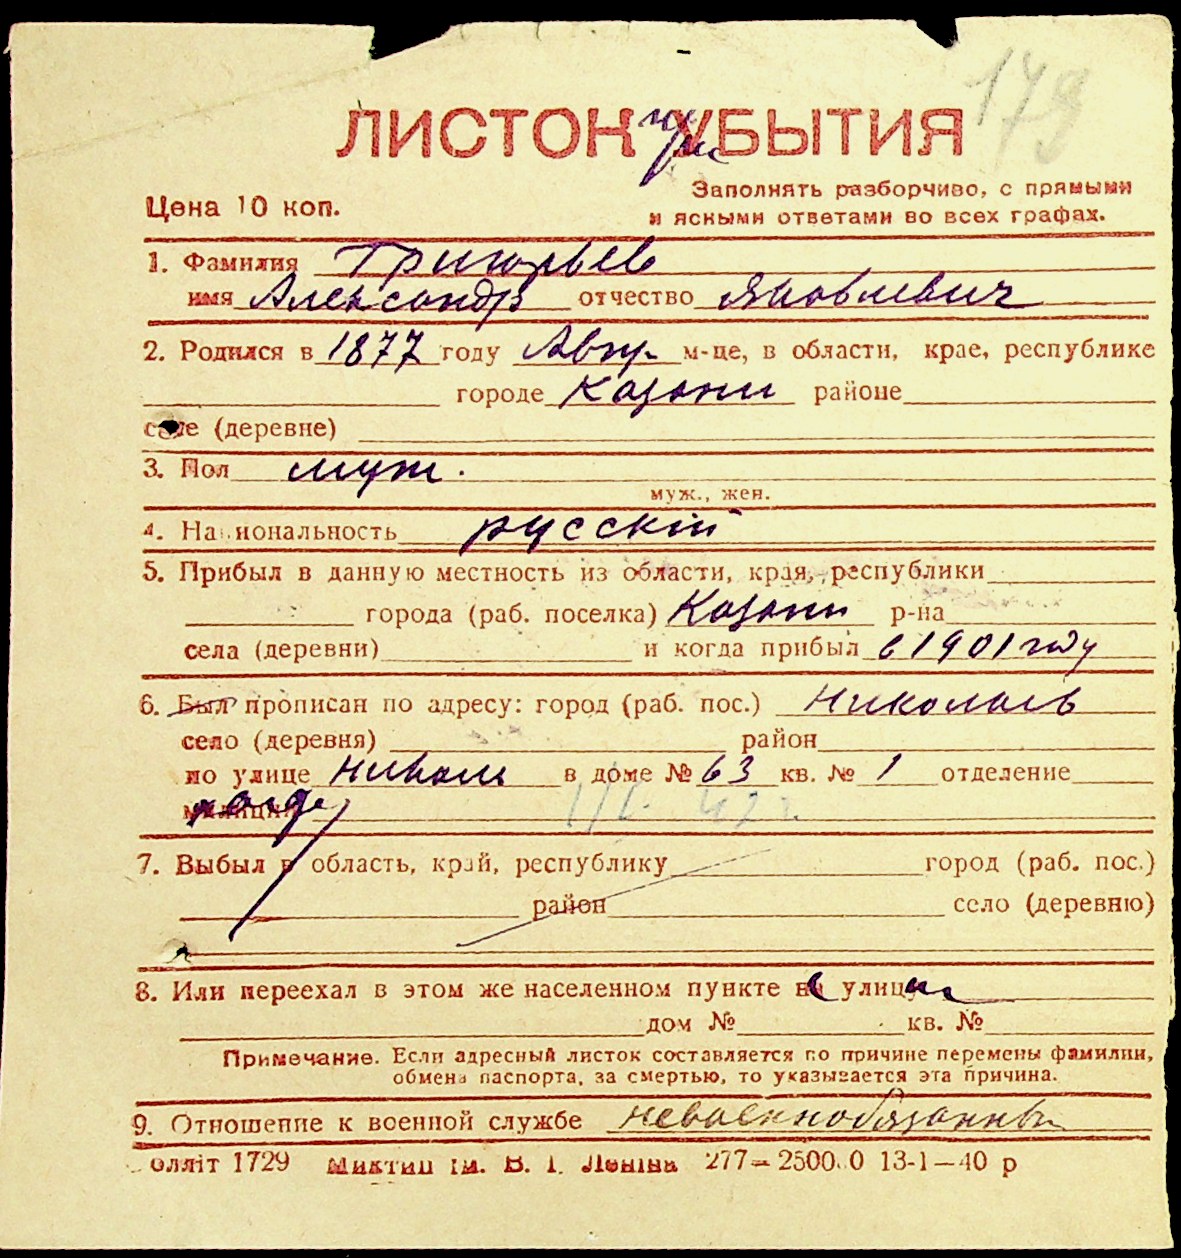 179
ЛИСТОК УБЫТИЯ
при
Цена 10 коп.
Заполнять разборчиво, с прямыми
и ясными ответами во всех графах.
1. Фамилия Григорьев
имя Александр отчество Яковлевич
2. Родился в 1877 году Авгу. м-це, в области, крае, республике
городе Казани районе
селе (деревне)
3. Пол муж.
муж., жен.
4. Национальность русскій
5. Прибыл в данную местность из области, края, республики
города (раб. поселка) Казани р-на
села (деревни) и когда прибыл с 1901 году
6. Был прописан по адресу: город (раб. пос.) Николаев
село (деревня) район
по улице Никол в доме № 63 кв. № 1 отделение
милиции
7. Выбыл в область, край, республику город (раб. пос.)
район село (деревню)
8. Или переехал в этом же населенном пункте на улицу
дом № кв. №
Примечание. Если адресный листок составляется по причине перемены фамилии,
обмена паспорта, за смертью, то указывается эта причина.
9. Отношение к военной службе невоеннообязанный
1729 277—25000 13-1—40 р